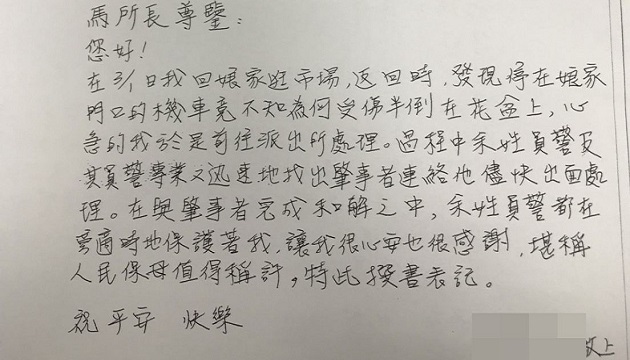 馬所長尊鑒:
您好!
在3/1日我回娘家逛市場,返回時,發現停在娘家
門口的機車竟不知為何受傷半倒在花盆上,心
急的我於是前往派出所處理。過程中禾姓員警及
其員警專業又迅速地找出肇事者連絡他儘快出面處
理。在與肇事者完成和解之中,禾姓員警都在
旁適時地保護著我,讓我很心安也很感謝,堪稱
人民保母值得稱許,特此撰書表記。
祝 平安 快樂
上